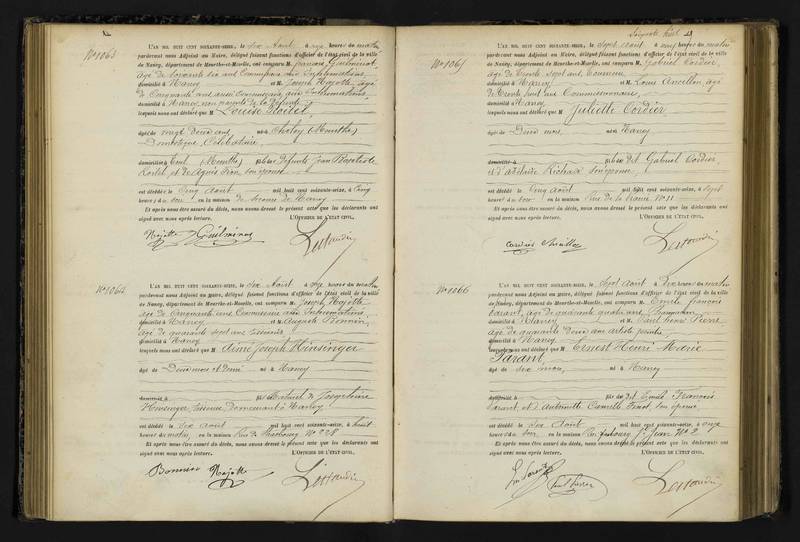 N° 1063
L'AN MIL HUIT CENT SOIXANTE-SEIZE, le six Août à dix heures du matin,
pardevant nous Adjoint au Maire, délégué faisant fonctions d'officier de l'état civil de la ville
de Nancy, département de Meurthe-et-Moselle, ont comparu M. François
âgé de soixante six ans Commissaire aux Inhumations,
domicilié à Nancy et M. Joseph Nojotte, âgé
de Cinquante ans aussi Commissaire aux Inhumations,
domicilié à Nancy, non parents de la défunte
lesquels nous ont déclaré que M Louise
âgée de vingt deux ans née à Choloy (Meurthe)
Domestique, Célibataire,
domiciliée à Toul (Meurthe) fille des défunts Jean Baptiste
et de son épouse
est décédée le Cinq Août mil huit cent soixante-seize, à Cinq
heures du soir en la maison de secours de Nancy
Et après nous être assuré du décès, nous avons dressé le présent acte que les déclarants ont
signé avec nous après lecture. L'OFFICIER DE L'ÉTAT CIVIL,
Nojotte
N° 1064
L'AN MIL HUIT CENT SOIXANTE-SEIZE, le six Août à dix heures du matin
pardevant nous Adjoint au Maire, délégué faisant fonctions d'officier de l'état civil de la ville
de Nancy, département de Meurthe-et-Moselle, ont comparu M. Joseph Nojotte,
âgé de Cinquante ans Commissaire aux Inhumations,
domicilié à Nancy et M. Auguste Bonnier,
âgé de quarante sept ans
domicilié à Nancy
lesquels nous ont déclaré que M Aimé Joseph Hinsinger
âgé de Deux mois et demi né à Nancy
domicilié à fils naturel de Joséphine
Hinsinger, domiciliée à Nancy
est décédé le six Août mil huit cent soixante-seize, à huit
heures du matin en la maison Rue de Strasbourg N° 228
Et après nous être assuré du décès, nous avons dressé le présent acte que les déclarants ont
signé avec nous après lecture. L'OFFICIER DE L'ÉTAT CIVIL,
Bonnier Nojotte
Soixante huit
N° 1065
L'AN MIL HUIT CENT SOIXANTE-SEIZE, le sept Août à neuf heures du matin
pardevant nous Adjoint au Maire, délégué faisant fonctions d'officier de l'état civil de la ville
de Nancy, département de Meurthe-et-Moselle, ont comparu M. Gabriel Cordier,
âgé de trente sept ans,
domicilié à Nancy et M. Louis Ancillon, âgé
de trente huit ans Commissionnaire,
domicilié à Nancy
lesquels nous ont déclaré que M Juliette Cordier
âgée de Deux mois, née à Nancy
domiciliée à fille dudit Gabriel Cordier,
et d'Adélaïde Richard son épouse
est décédée le Cinq Août mil huit cent soixante-seize, à sept
heures du soir en la maison Rue de la N° 11
Et après nous être assuré du décès, nous avons dressé le présent acte que les déclarants ont
signé avec nous après lecture. L'OFFICIER DE L'ÉTAT CIVIL,
N° 1066
L'AN MIL HUIT CENT SOIXANTE-SEIZE, le sept Août à Dix heures du matin
pardevant nous Adjoint au Maire, délégué faisant fonctions d'officier de l'état civil de la ville
de Nancy, département de Meurthe-et-Moselle, ont comparu M. Emile François
Parant, âgé de quarante quatre ans
domicilié à Nancy et M. Paul Henri Pierre
âgé de quarante deux ans artiste peintre
domicilié à Nancy
lesquels nous ont déclaré que M Ernest Henri Marie
Parant
âgé de six mois, né à Nancy
domicilié à fils dudit Emile François
Parant, et d' Camille son épouse
est décédé le six Août mil huit cent soixante-seize, à onze
heures du soir en la maison Rue faubourg St Jean N° 2
Et après nous être assuré du décès, nous avons dressé le présent acte que les déclarants ont
signé avec nous après lecture. L'OFFICIER DE L'ÉTAT CIVIL,